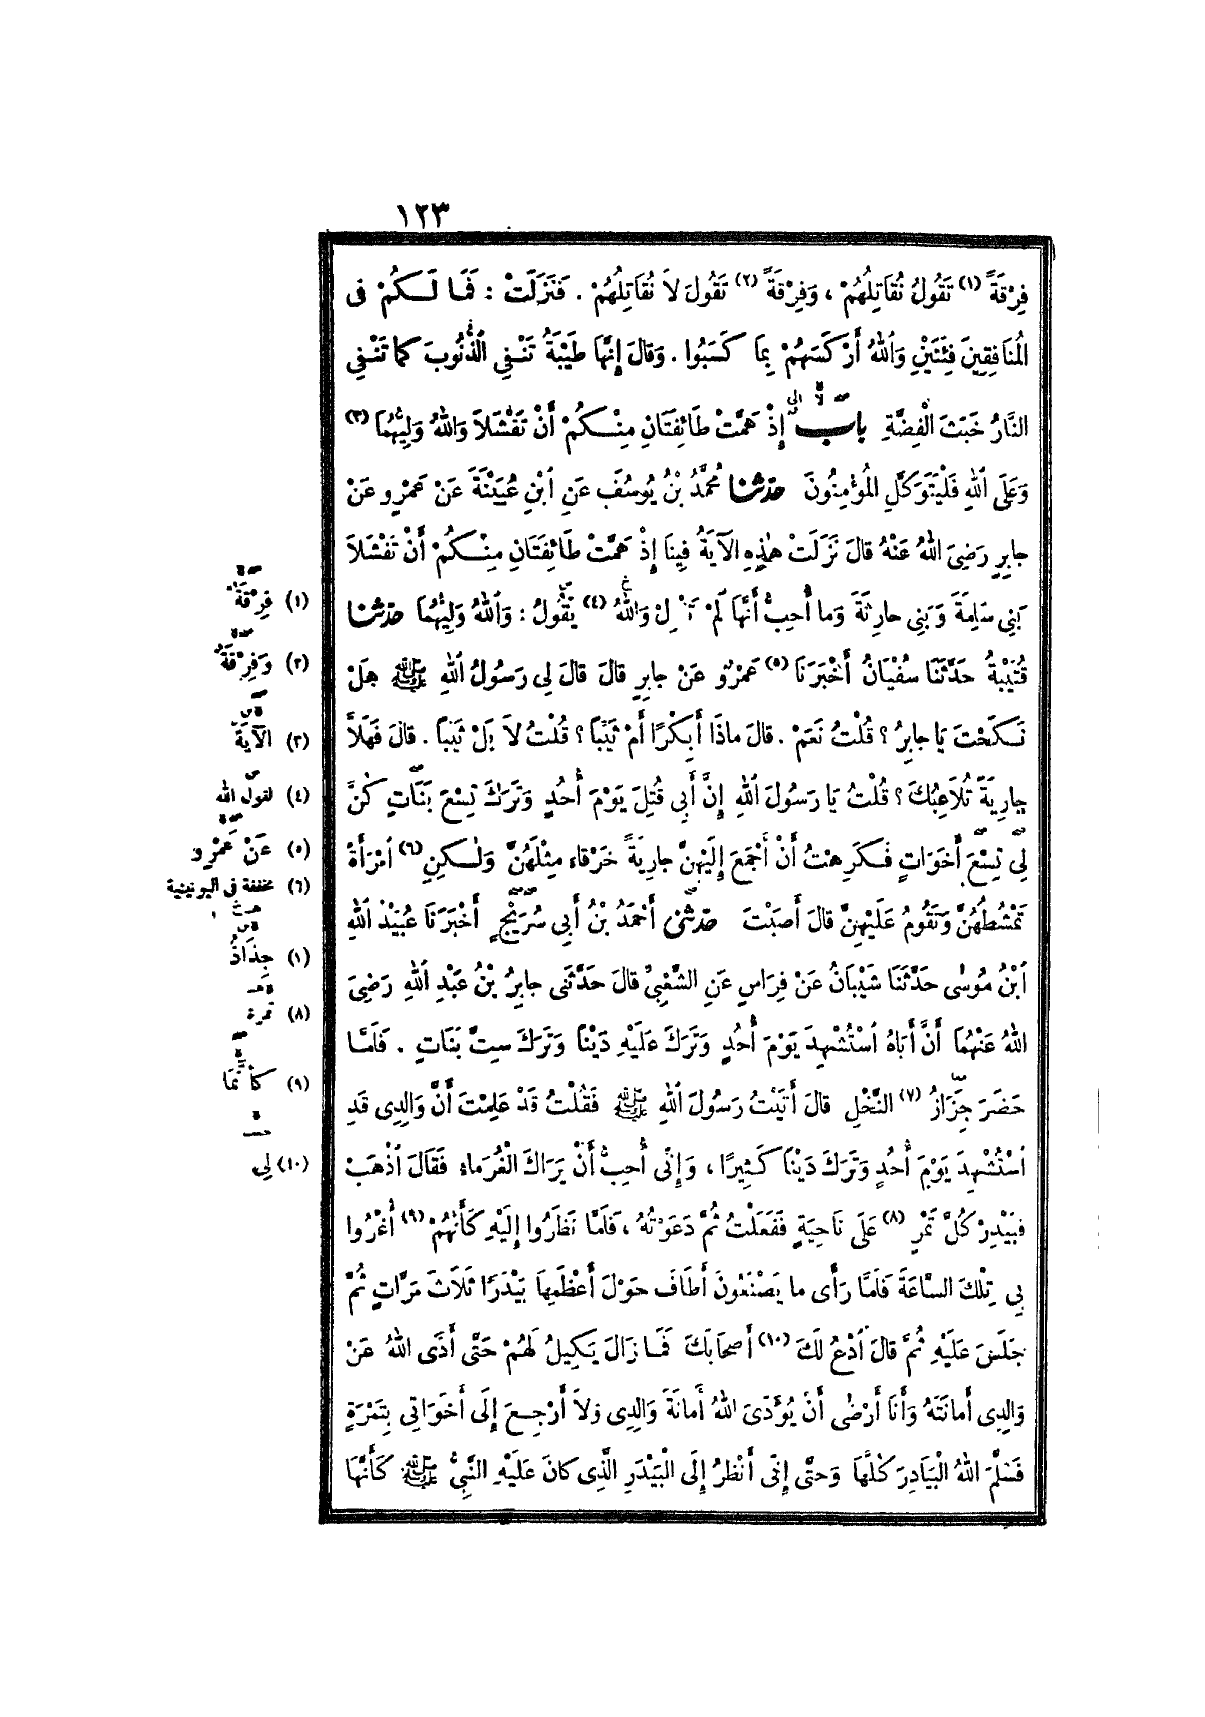 ١٢٣
فِرْقَةً (١) تَقُولُ نُقَاتِلُهُمْ ، وَفِرْقَةً (٢) تَقُولُ لاَ نُقَاتِلُهُمْ . فَنَزَلَتْ : فَمَا لَكُمْ فِى
الْمُنَافِقِينَ فِئَتَيْنِ وَاللّٰهُ أَرْكَسَهُمْ بِمَا كَسَبُوا . وَقَالَ إِنَّهَا طَيْبَةُ تَنْفِي الذُّنُوبَ كما تَنْفِي
النَّارُ خَبَثَ الْفِضَّةِ باب إِذْ هَمَّتْ طَائِفَتَانِ مِنْكُمْ أَنْ تَفْشَلاَ وَاللّٰهُ وَلِيُّهُمَا (٣)
وَعَلَى اللّٰهِ فَلْيَتَوَكَّلِ الْمُؤْمِنُونَ حدثنا مُحَمَّدُ بْنُ يُوسُفَ عَنِ ابْنِ عُيَيْنَةَ عَنْ عَمْرٍو عَنْ
جابِرٍ رَضِيَ اللّٰهُ عَنْهُ قالَ نَزَلَتْ هٰذِهِ الآيَةُ فِينَا إِذْ هَمَّتْ طَائِفَتَانِ مِنْكُمْ أَنْ تَفْشَلاَ
بَنِي سَلِمَةَ وَبَنِي حارِثَةَ وَما أُحِبُّ أَنَّهَا لَمْ تَنْزِلْ وَاللّٰهُ (٤) يَقُولُ : وَاللّٰهُ وَلِيُّهُمَا حدثنا
قُتَيْبَةُ حَدَّثَنَا سُفْيَانُ أَخْبَرَنَا (٥) عَمْرٌو عَنْ جابِرٍ قالَ قالَ لِي رَسُولُ اللّٰهِ ﷺ هَلْ
نَكَحْتَ يَا جابِرُ ؟ قُلْتُ نَعَمْ . قالَ ماذَا أَبِكْرًا أَمْ ثَيِّبًا ؟ قُلْتُ لاَ بَلْ ثَيِّبًا . قالَ فَهَلاَّ
جارِيَةً تُلاَعِبُكَ ؟ قُلْتُ يَا رَسُولَ اللّٰهِ إِنَّ أَبِي قُتِلَ يَوْمَ أُحُدٍ وَتَرَكَ تِسْعَ بَنَاتٍ كُنَّ
لِي تِسْعَ أَخَوَاتٍ فَكَرِهْتُ أَنْ أَجْمَعَ إِلَيْهِنَّ جارِيَةً خَرْقاءَ مِثْلَهُنَّ وَلٰكِنِ (٦) امْرَأَةً
تَمْشُطُهُنَّ وَتَقُومُ عَلَيْهِنَّ قالَ أَصَبْتَ حدثني أَحْمَدُ بْنُ أَبِي سُرَيْجٍ أَخْبَرَنَا عُبَيْدُ اللّٰهِ
ابْنُ مُوسٰى حَدَّثَنَا شَيْبَانُ عَنْ فِرَاسٍ عَنِ الشَّعْبِيِّ قالَ حَدَّثَنِي جابِرُ بْنُ عَبْدِ اللّٰهِ رَضِيَ
اللّٰهُ عَنْهُمَا أَنَّ أَبَاهُ اسْتُشْهِدَ يَوْمَ أُحُدٍ وَتَرَكَ عَلَيْهِ دَيْنًا وَتَرَكَ سِتَّ بَنَاتٍ . فَلَمَّا
حَضَرَ جِزَازُ (٧) النَّخْلِ قالَ أَتَيْتُ رَسُولَ اللّٰهِ ﷺ فَقُلْتُ قَدْ عَلِمْتَ أَنَّ وَالِدِى قَدِ
اسْتُشْهِدَ يَوْمَ أُحُدٍ وَتَرَكَ دَيْنًا كَثِيرًا ، وَإِنِّي أُحِبُّ أَنْ يَرَاكَ الْغُرَماءُ فَقَالَ اذْهَبْ
فَبَيْدِرْ كُلَّ تَمْرٍ (٨) عَلَى نَاحِيَةٍ فَفَعَلْتُ ثُمَّ دَعَوْتُهُ ، فَلَمَّا نَظَرُوا إِلَيْهِ كَأَنَّهُمْ (٩) أُغْرُوا
بِي تِلْكَ السَّاعَةَ فَلَمَّا رَأَى ما يَصْنَعُونَ أَطَافَ حَوْلَ أَعْظَمِهَا بَيْدَرًا ثَلاَثَ مَرَّاتٍ ثُمَّ
جَلَسَ عَلَيْهِ ثُمَّ قالَ ادْعُ لَكَ (١٠) أَصْحَابَكَ فَمَا زَالَ يَكِيلُ لَهُمْ حَتَّى أَدَّى اللّٰهُ عَنْ
وَالِدِى أَمَانَتَهُ وَأَنَا أَرْضٰى أَنْ يُؤَدِّىَ اللّٰهُ أَمَانَةَ وَالِدِى وَلاَ أَرْجِعَ إِلَى أَخَوَاتِي بِتَمْرَةٍ
فَسَلَّمَ اللّٰهُ الْبَيَادِرَ كُلَّهَا وَحَتَّى إِنِّي أَنْظُرُ إِلَى الْبَيْدَرِ الَّذِى كانَ عَلَيْهِ النَّبِيُّ ﷺ كَأَنَّهَا
(١) فِرْقَةٌ
(٢) وَفِرْقَةٌ
(٣) الآيَةَ
(٤) لقول الله
(٥) عَنْ عَمْرٍو
(٦) مخففة فى اليونينية
(١) جِذَاذُ
(٨) تمرة
(٩) كأَنَّمَا
(١٠) لِي